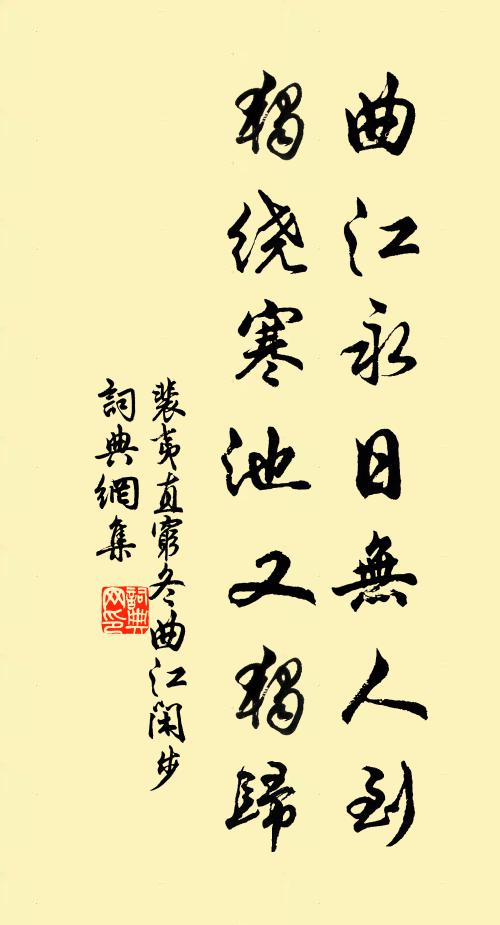 曲江永日無人到
獨绕寒池又獨歸
裴夷直窮冬曲江閑步
詞典網集
詞典
网印